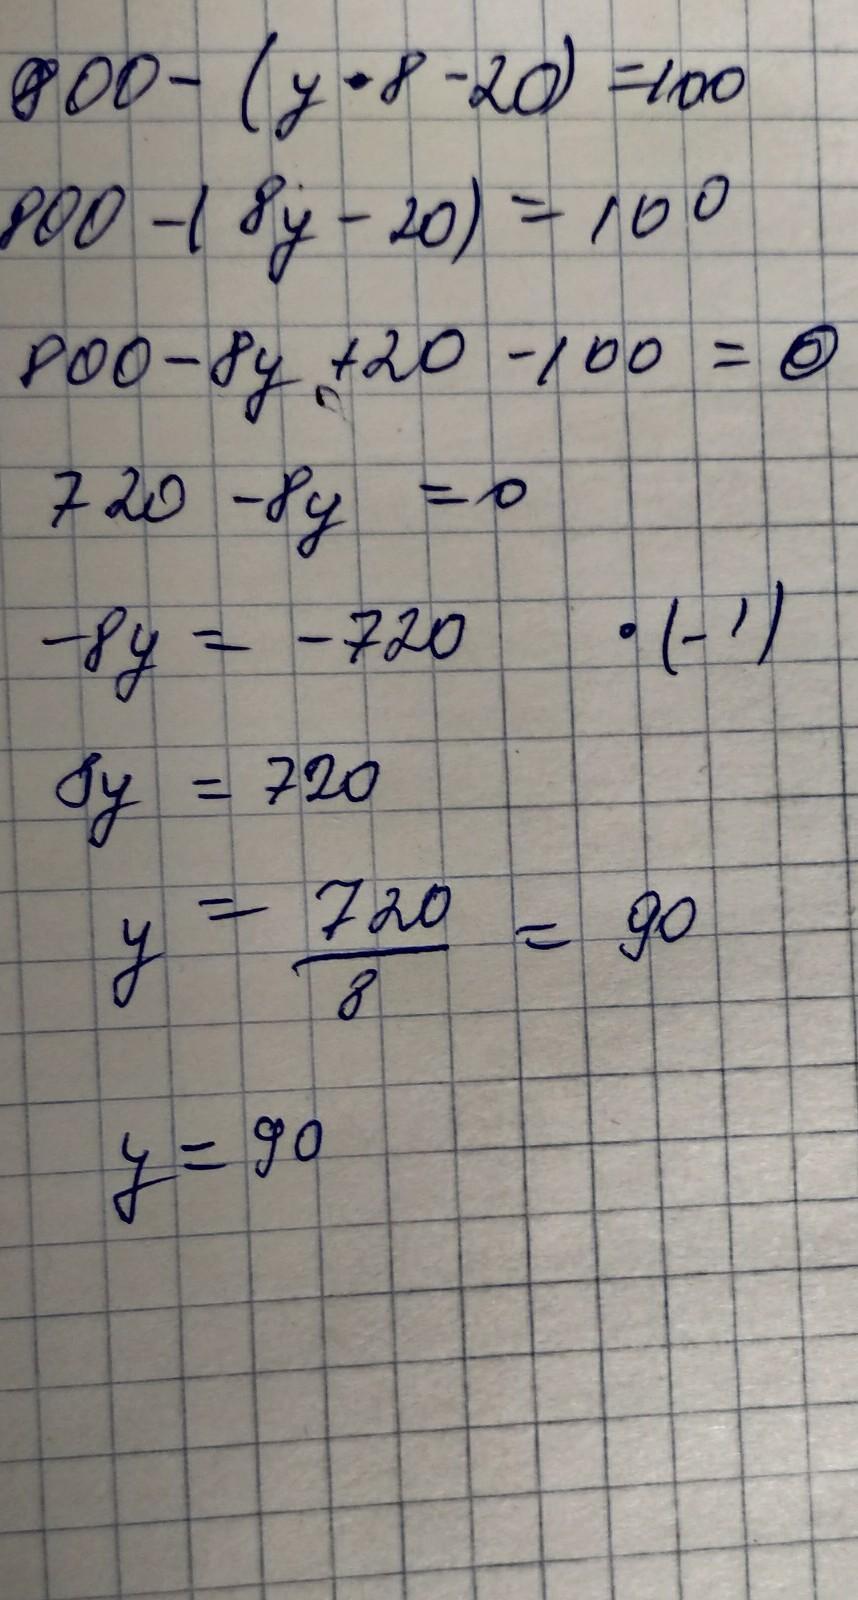 800 - (y · 8 - 20) = 100
800 - (8y - 20) = 100
800 - 8y + 20 - 100 = 0
720 - 8y = 0
-8y = -720 · (-1)
8y = 720
y = 720/8 = 90
y = 90